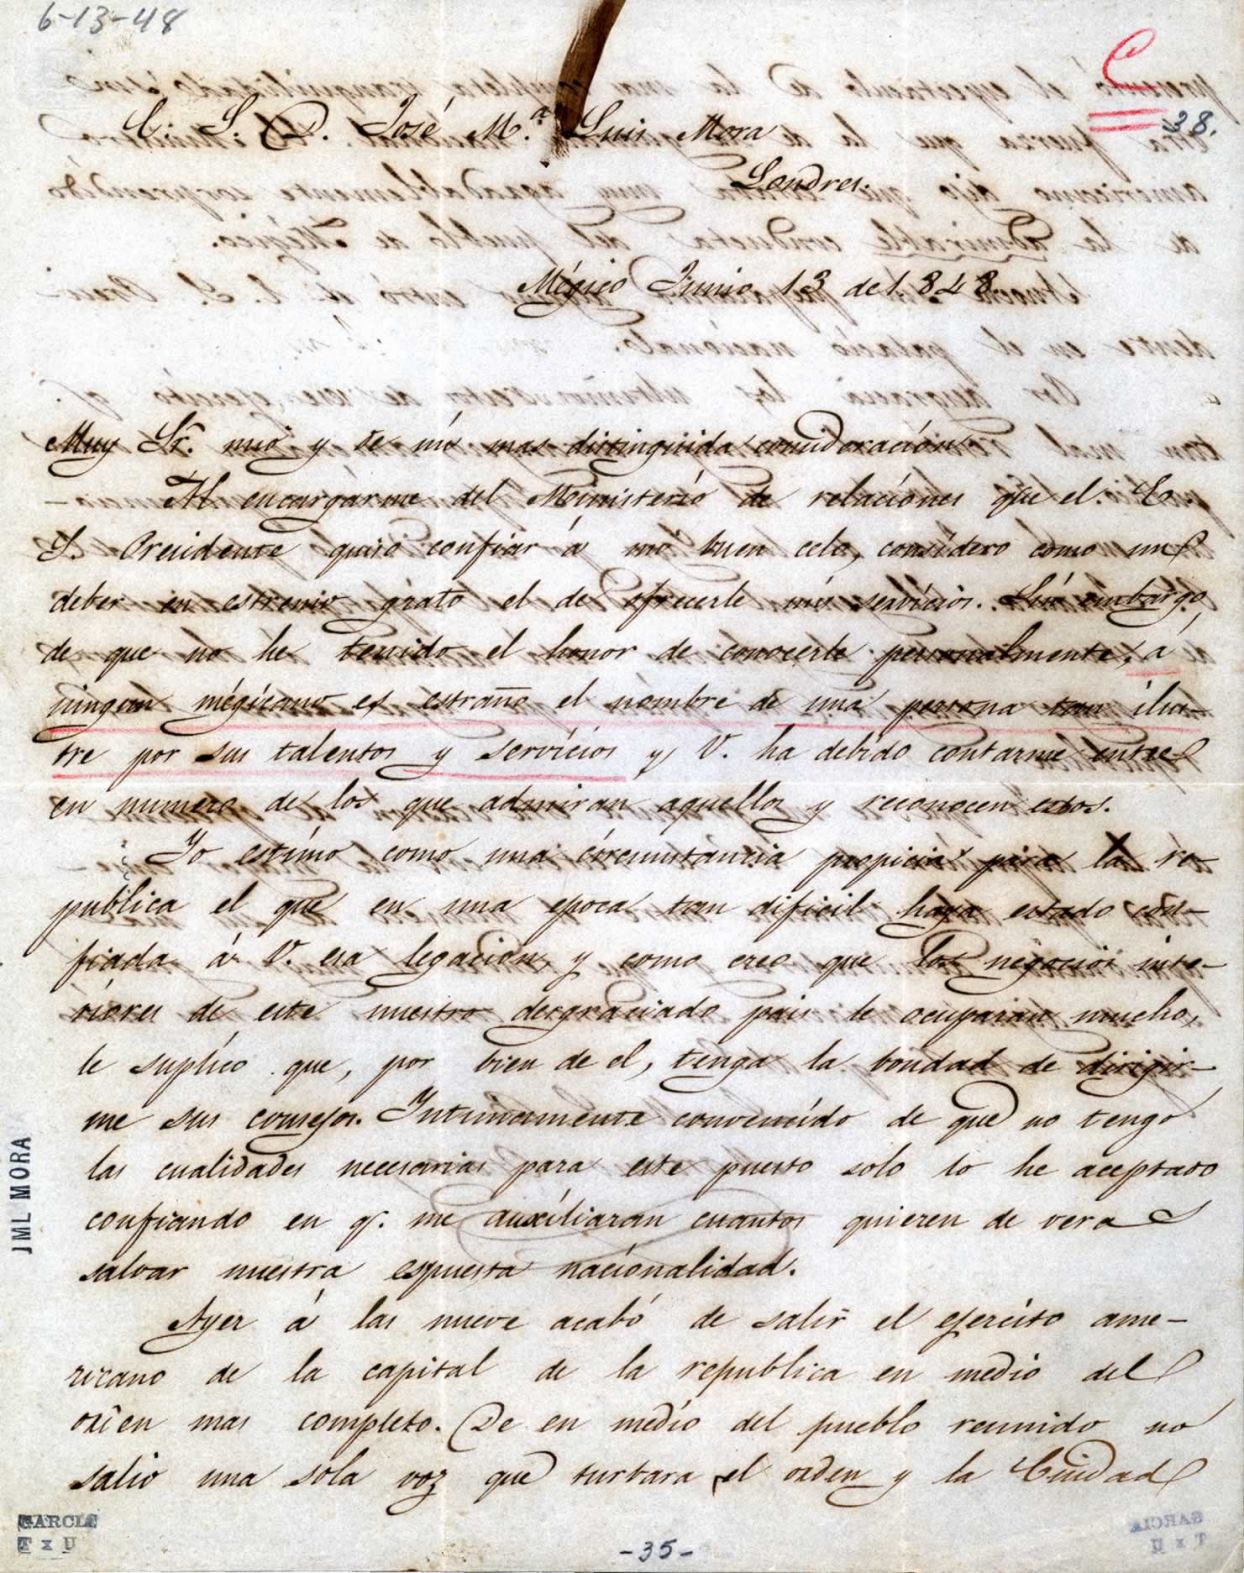 6-13-48
C
38.
E. S. D. José M.ª Luis Mora
Londres.
Mégico Junio 13 de 1.848.
Muy Sr. mio y de mi mas distinguida consideracion
Al encargarme del Ministerio de relaciones que el Eo.
S. Presidente quiso confiar á mi buen celo, considero como un
deber en estremo grato el de ofrecerle mis servicios. Sin embargo
de que no he tenido el honor de conocerle personalmente, á
ningun mégicano es estraño el nombre de una persona tan ilus-
tre por sus talentos y servicios y V. ha debido contarme entre
en numero de los que admiran aquellos y reconocen estos.
Yo estimo como una circunstancia propicia para la re-
publica el que en una epoca tan dificil haya estado con-
fiada á V. esa legacion, y como creo que los negocios inte-
riores de este nuestro desgraciado pais le ocuparán mucho,
le suplico que, por bien de el, tenga la bondad de dirigir-
me sus consejos. Intimamente convencido de que no tengo
las cualidades necesarias para este puesto solo lo he aceptado
confiando en q.e me auxiliaran cuantos quieren de veras
salvar nuestra espuesta nacionalidad.
Ayer á las nueve acabó de salir el ejercito ame-
ricano de la capital de la republica en medio del
orden mas completo. De en medio del pueblo reunido no
salio una sola voz que turbara el orden y la Ciudad
JML MORA
GARCIA
T x U
-35-
GARCIA
T x U